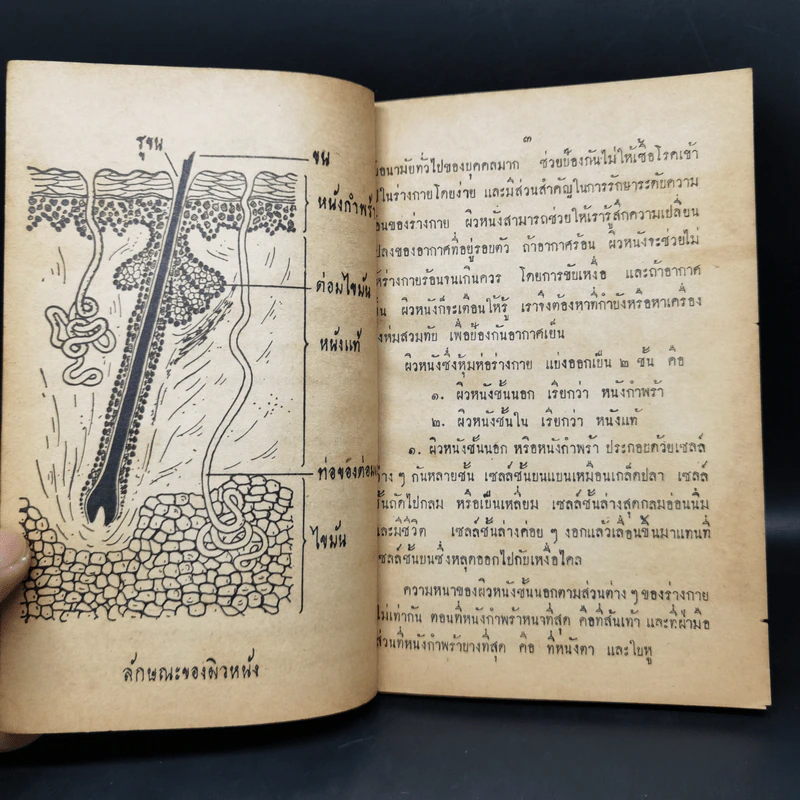 รูขน
ขน
หนังกำพร้า
ต่อมไขมัน
หนังแท้
ท่อของต่อม
ไขมัน
ลักษณะของผิวหนัง
๓
อนามัยทั่วไปของบุคคลมาก ช่วยป้องกันไม่ให้เชื้อโรคเข้า
ในร่างกายโดยง่าย และมีส่วนสำคัญในการรักษาระดับความ
ของร่างกาย ผิวหนังสามารถช่วยให้เรารู้สึกความเปลี่ยน
แปลงของอากาศที่อยู่รอบตัว ถ้าอากาศร้อน ผิวหนังจะช่วยไม่
ให้ร่างกายร้อนจนเกินควร โดยการขับเหงื่อ และถ้าอากาศ
ผิวหนังก็จะเตือนให้รู้ เราจึงต้องหาที่กำบังหรือหาเครื่อง
ห่มสวมทับ เพื่อป้องกันอากาศเย็น
ผิวหนังซึ่งหุ้มห่อร่างกาย แบ่งออกเป็น ๒ ชั้น คือ
๑. ผิวหนังชั้นนอก เรียกว่า หนังกำพร้า
๒. ผิวหนังชั้นใน เรียกว่า หนังแท้
๑. ผิวหนังชั้นนอก หรือหนังกำพร้า ประกอบด้วยเซลล์
ต่าง ๆ กันหลายชั้น เซลล์ชั้นบนแบนเหมือนเกล็ดปลา เซลล์
ชั้นถัดไปกลม หรือเป็นเหลี่ยม เซลล์ชั้นล่างสุดกลมอ่อนนิ่ม
และมีชีวิต เซลล์ชั้นล่างค่อย ๆ งอกแล้วเลื่อนขึ้นมาแทนที่
เซลล์ชั้นบนซึ่งหลุดออกไปกับเหงื่อไคล
ความหนาของผิวหนังชั้นนอกตามส่วนต่าง ๆ ของร่างกาย
ไม่เท่ากัน ตอนที่หนังกำพร้าหนาที่สุด คือที่ส้นเท้า และที่ฝ่ามือ
ส่วนที่หนังกำพร้าบางที่สุด คือ ที่หนังตา และใบหู